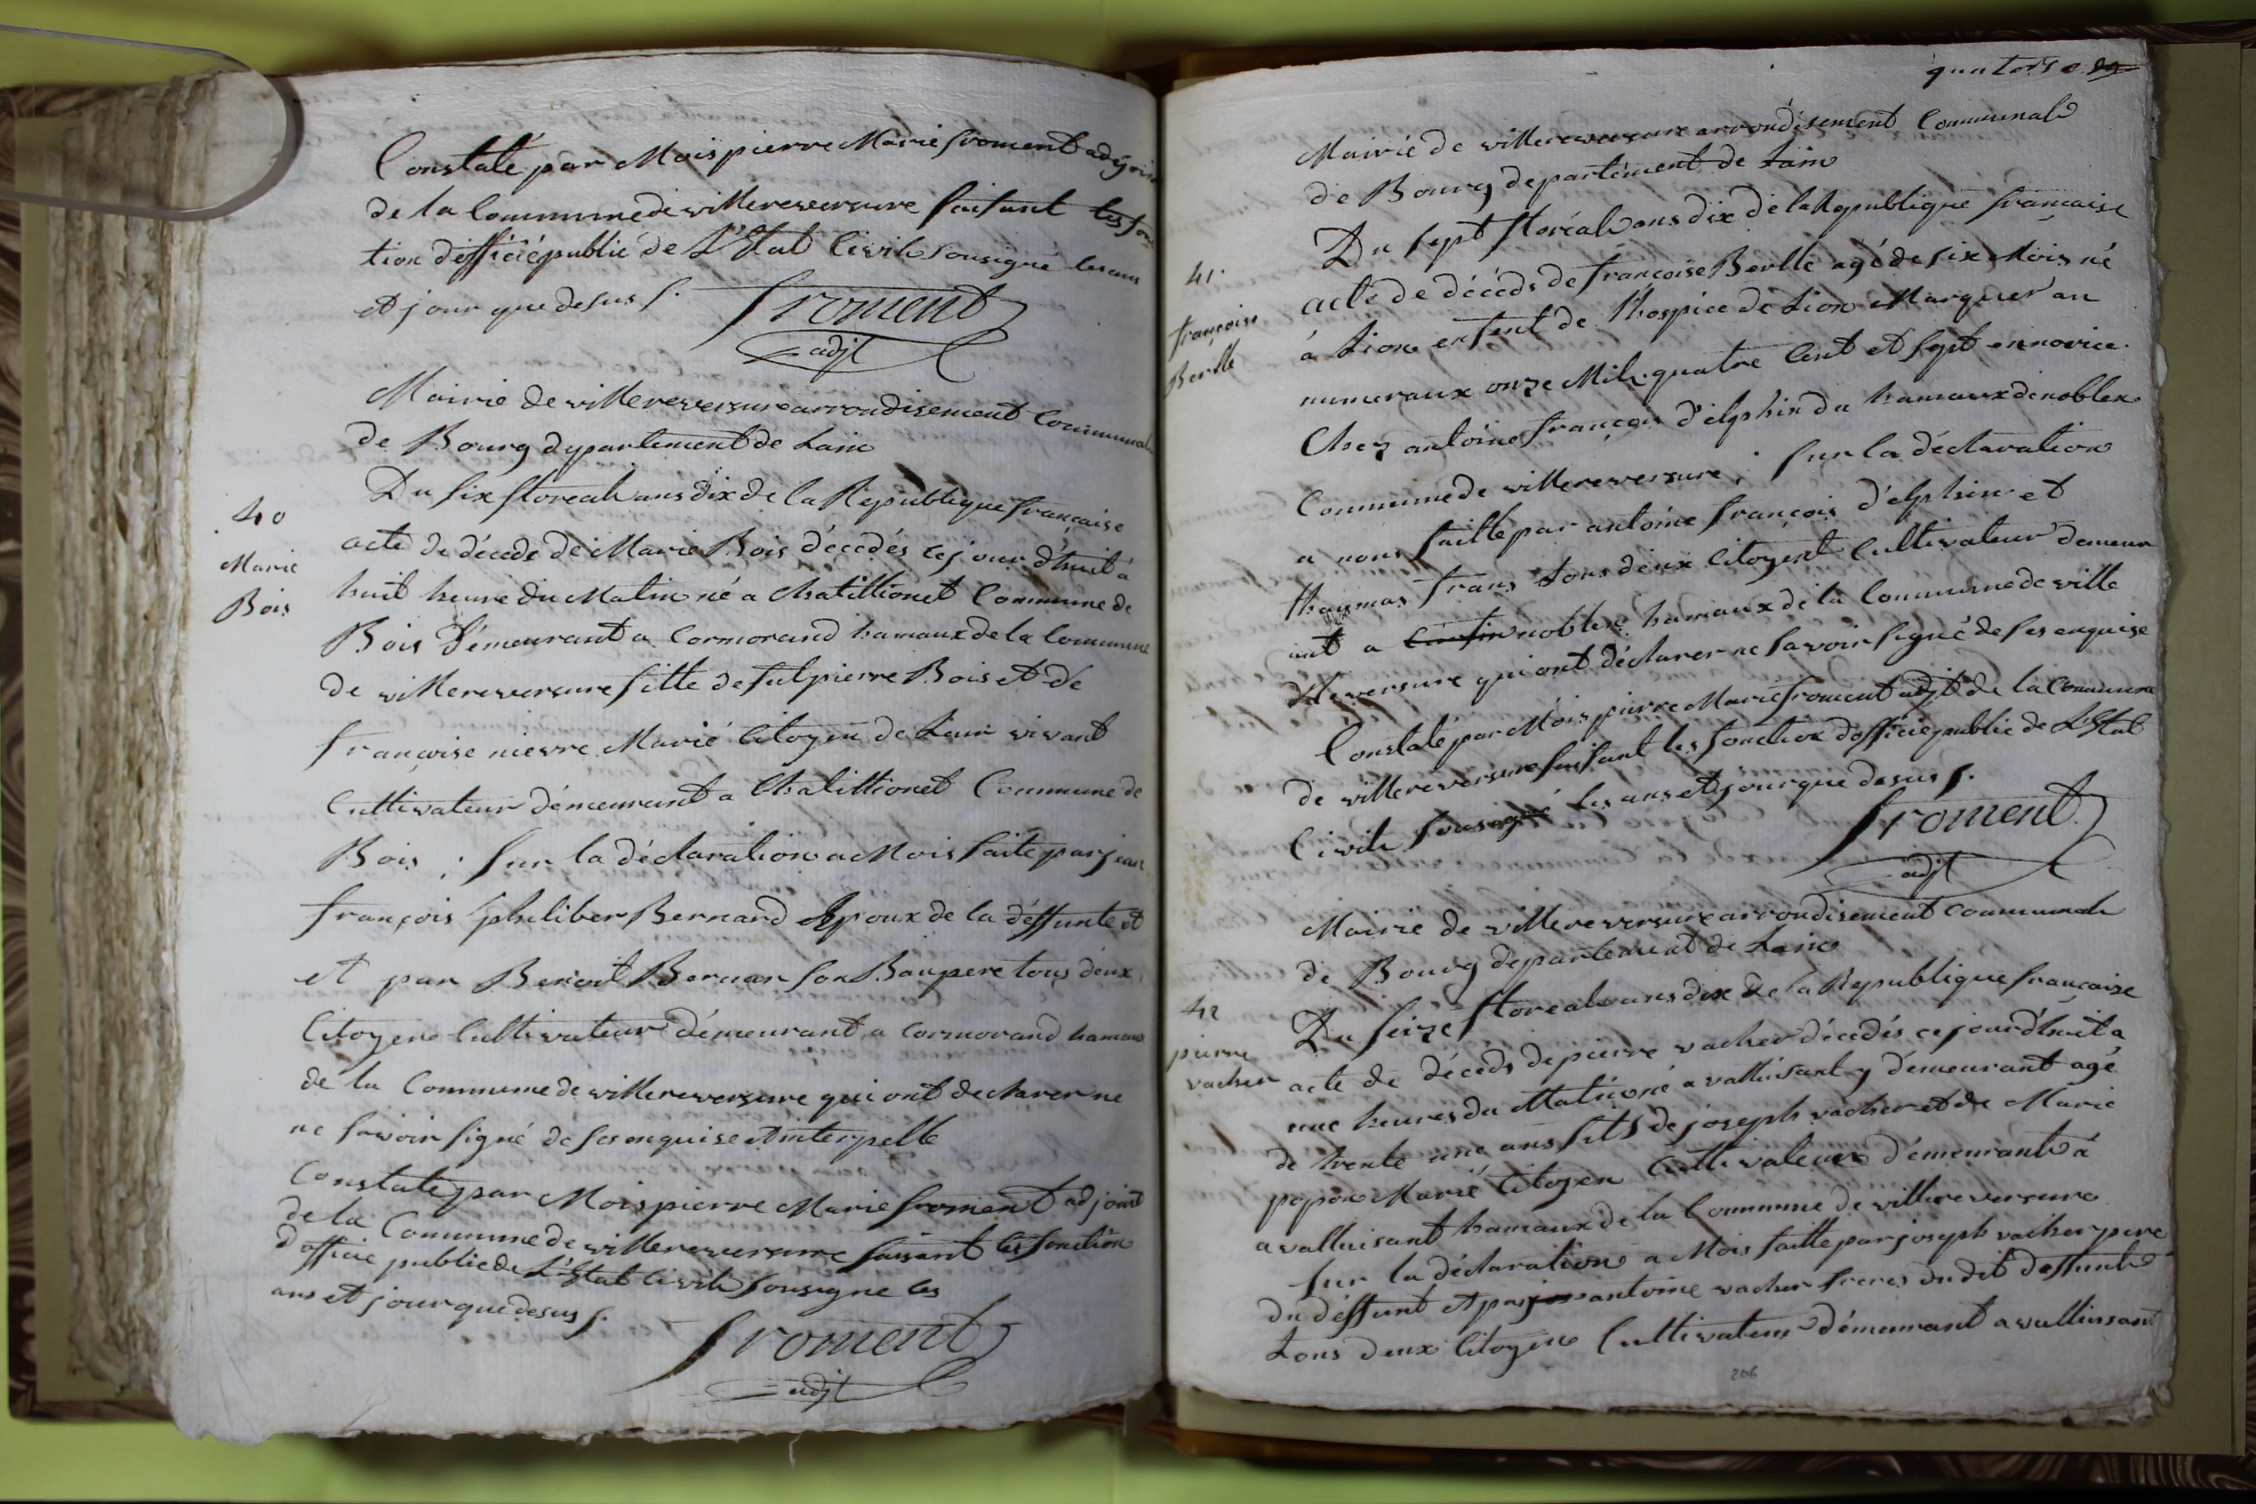 Constaté par Mois pierre Marie froment adjoin
de la Commune de villereversure faisant les fon
tion d'officié public de L'Etat Civile sousigné les ans
et jour que desus f.
froment
adjt
Mairie de villereversure arrondisement Communale
de Bourg departement de Lain
40
Marie
Bois
Du six floreal ans dix de la Republique française
acte de décede de Marie Bois décedés ce jour d'huit à
huit heure du Matin né a Chatillionet Commune de
Bois Démeurant a Cormorand hamaux de la Commune
de villereversure fille de fut pierre Bois et dé
françoise nievre Marié Citoyen de Leur vivant
Cultivateur démeurant a Chatillionet Commune de
Bois ; sur la déclaration a Mois faite par jean
françois philiber Bernard Epoux de la déffunte et
et par Benoit Bernar son Baupere tous deux
Citoyens Cultivateur démeurant a Cormorand hamaux
de la Commune de villereversure qui ont declarer ne
ne savoir signé de ses enquise et interpelle
Constate par Mois pierre Marie froment adjoint
de la Commune de villereversure faisant les fonction
d'officié public de L'Etat Civile sousigne les
ans et jour que desus f.
froment
adjt
quatorse 89
Mairié de villereversure arrondisement Communale
de Bourg departément de Lain
41.
françoise
Berlle
Du sept floréal ans dix de la Republique française
acte de décéds de françoise Berlle agé de six Mois né
à Lion enfent de Lhospice de Lion Marquer au
numeraux onze Mil quatre Cent et sept en novice
Chez antoine françois D'elphin du hamaux de noblen
Commune de villereversure ; sur la déclaration
a nous faille par antoine françois d'elphin et
thaumas frans tous deux Citoyent Cultivateur demeur
ant a noblens hamaux de la Commune de ville
villeversure qui ont déclarer ne savoir signé de ses enquise
Constaté par Mois pierre Marie froment adjt de la Commune
de villereversure faisant les fonction d'officié public de L'Etat
Civile sousigné les ans et jour que desus f.
froment
adjt
Mairie de villereversure arrondisement Communale
de Bourg departement de Lain
42
pierre
vacher
Du seize floreal ans dix de la Republique française
acte de décéds de pierre vacher décedés ce jour d'huit a
une heures du Matin né a valluisant y démeurant agé
de trente une ans fils de joseph vacher et de Marie
popon Marié Citoyen Cultivateur démeurant à
a valluisant hamaux de la Commune de villereversure
sur la déclaration a Mois faille par joseph vacher pere
du déffunt et par antoine vacher freres du dit deffunt
tous deux Citoyen Cultivateur démeurant a valluisant
206